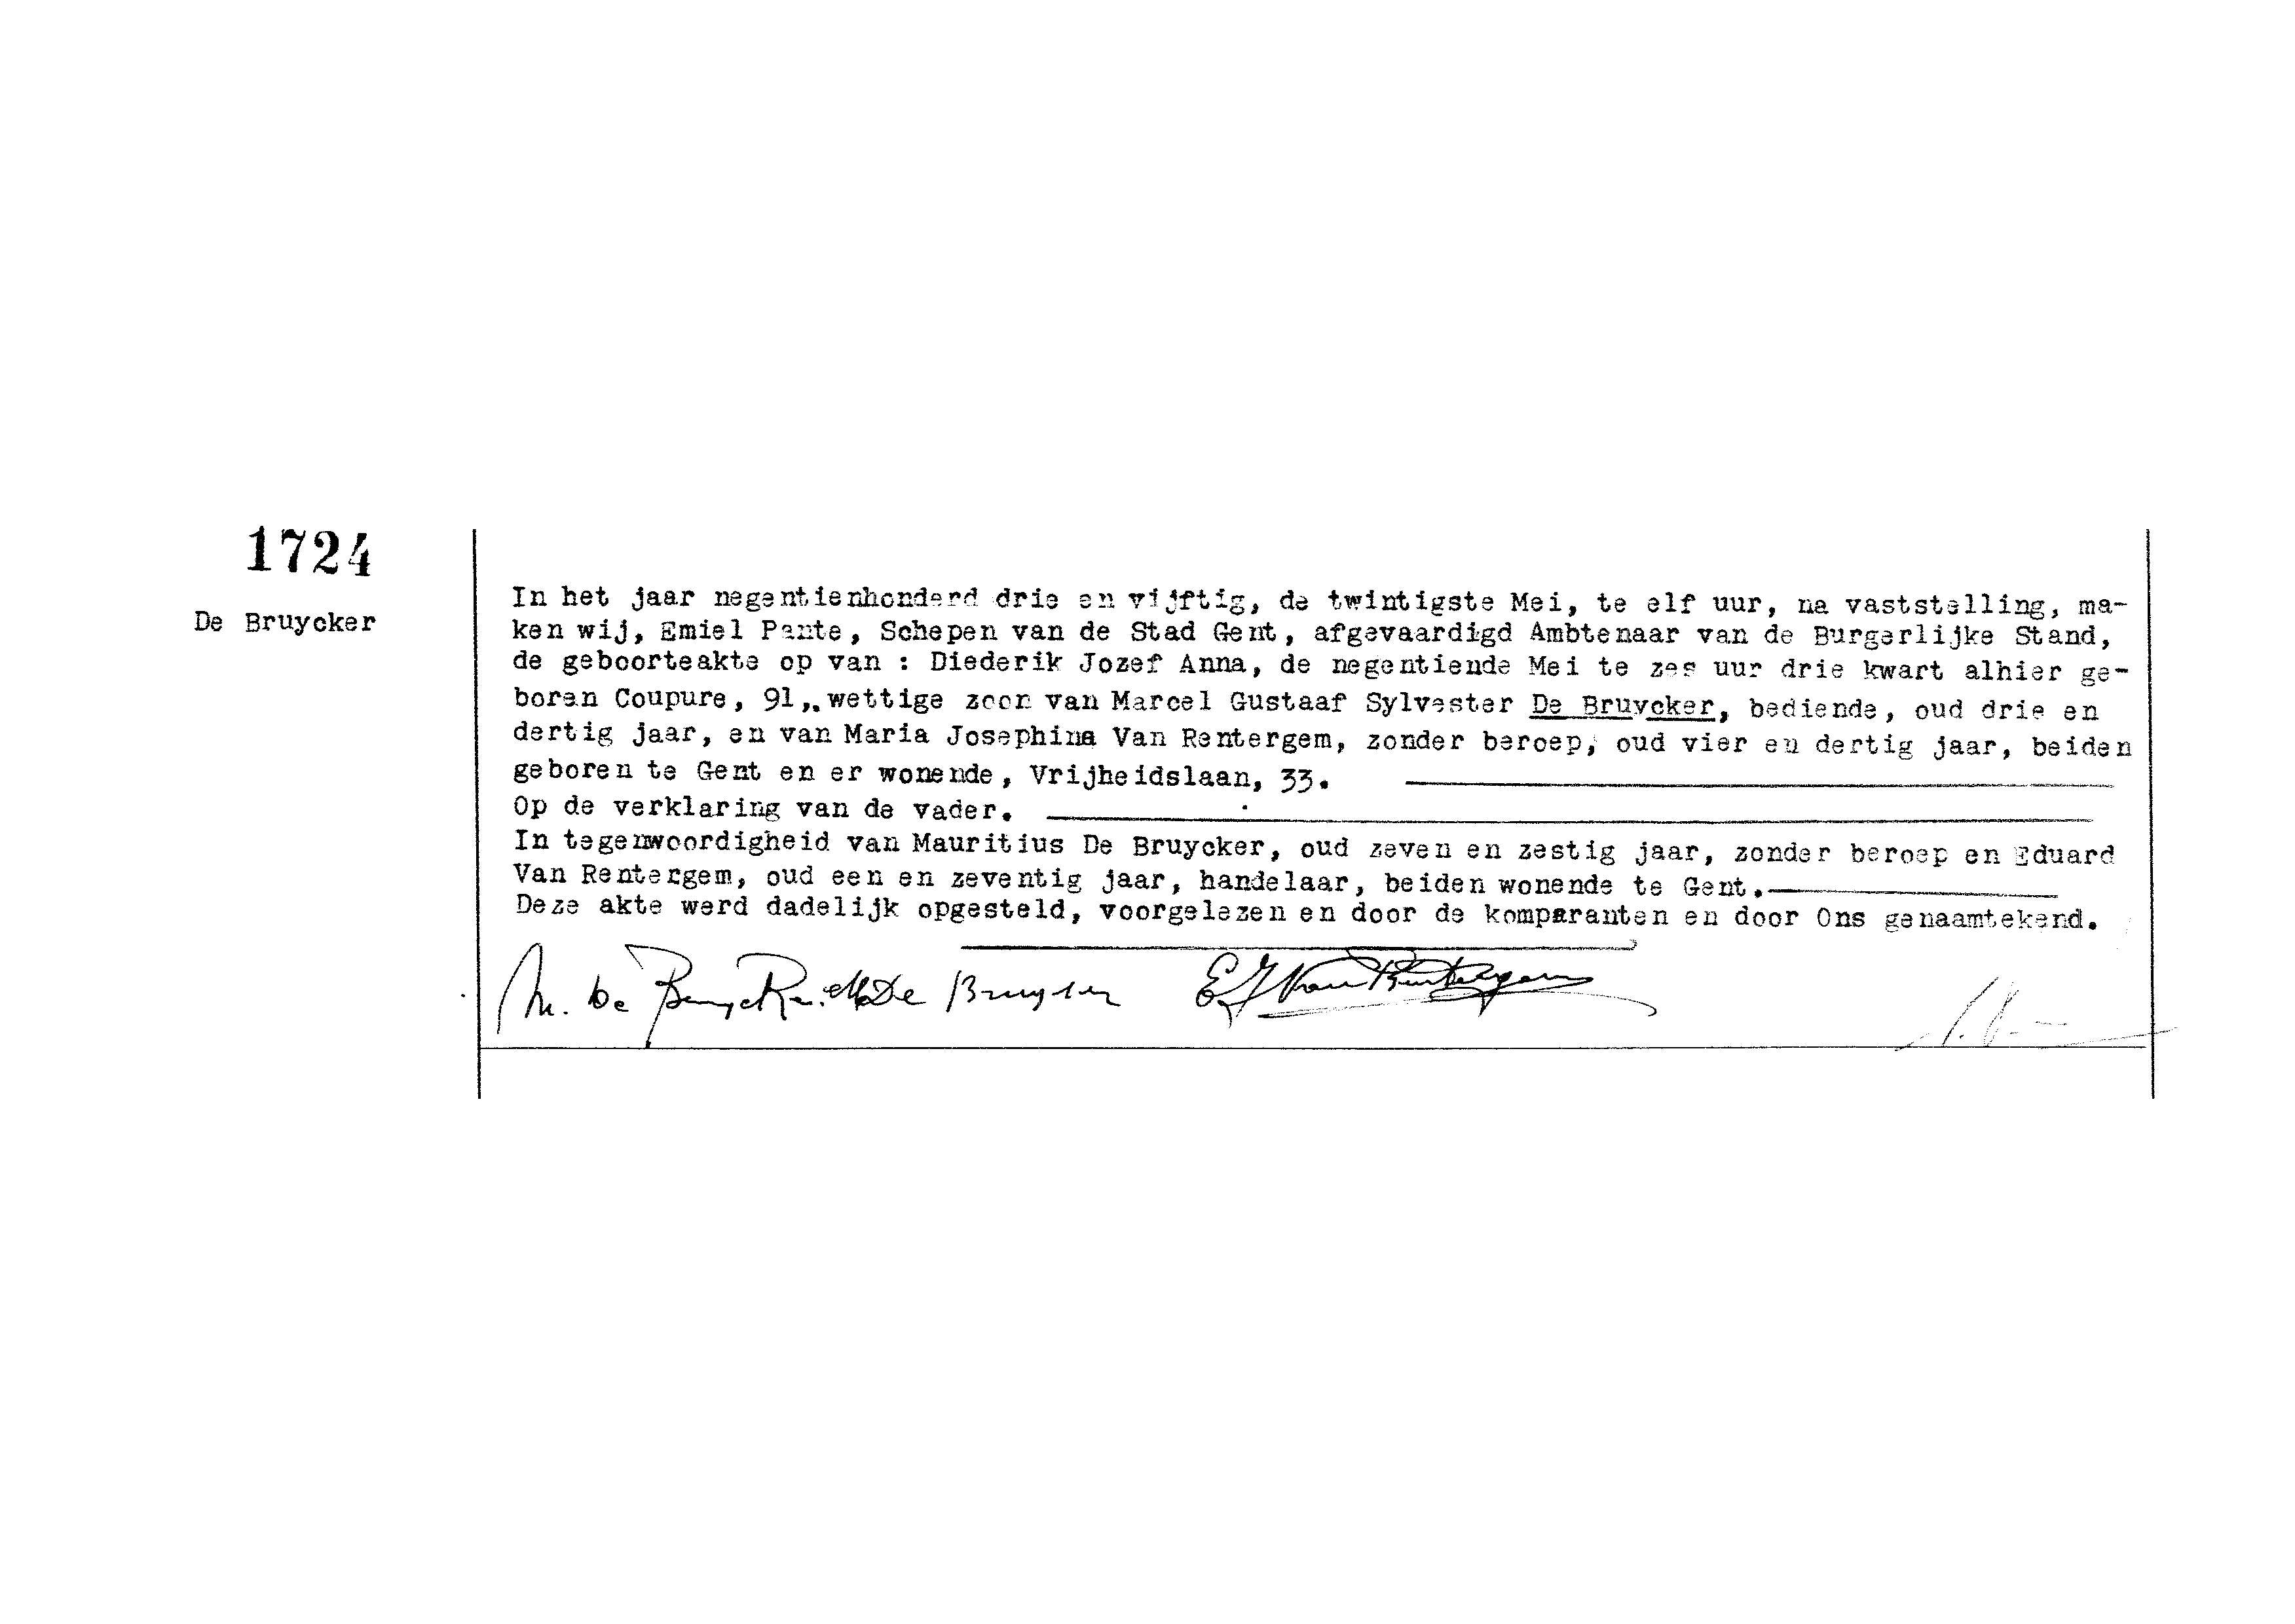 1724
De Bruycker
In het jaar negentienhonderd drie en vijftig, de twintigste Mei, te elf uur, na vaststelling, ma-
ken wij, Emiel Pante, Schepen van de Stad Gent, afgevaardigd Ambtenaar van de Burgerlijke Stand,
de geboorteakte op van : Diederik Jozef Anna, de negentiende Mei te zes uur drie kwart alhier ge-
boren Coupure, 91,. wettige zoon van Marcel Gustaaf Sylvester De Bruycker, bediende, oud drie en
dertig jaar, en van Maria Josephina Van Rentergem, zonder beroep, oud vier en dertig jaar, beiden
geboren te Gent en er wonende, Vrijheidslaan, 33.
Op de verklaring van de vader.
In tegenwoordigheid van Mauritius De Bruycker, oud zeven en zestig jaar, zonder beroep en Eduard
Van Rentergem, oud een en zeventig jaar, handelaar, beiden wonende te Gent.
Deze akte werd dadelijk opgesteld, voorgelezen en door de komparanten en door Ons genaamtekend.
M. De Bruycker. De Bruycker E J Van Rentergem